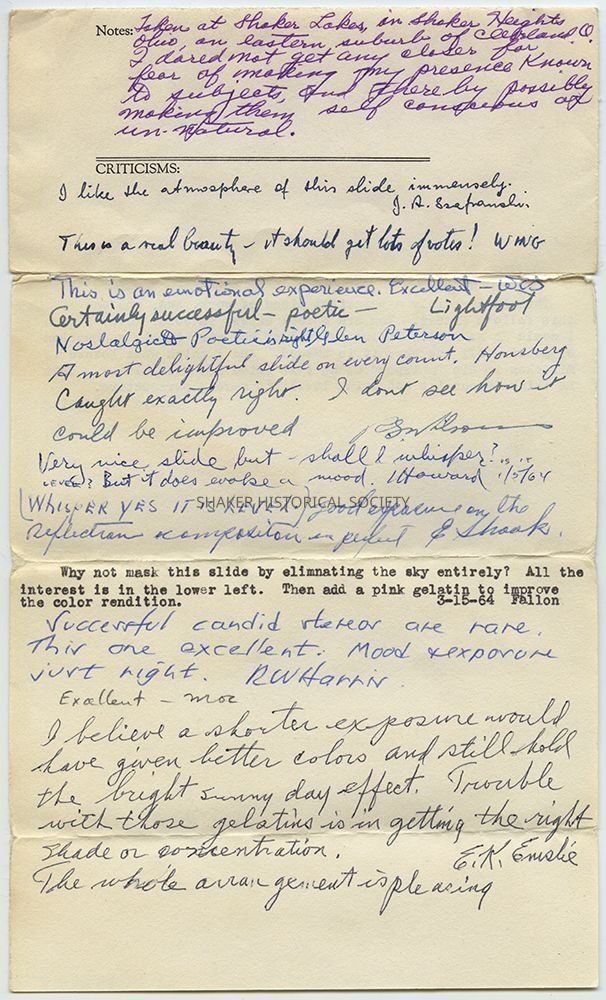 Notes: Taken at Shaker Lakes, in Shaker Heights
Ohio, an eastern suburb of Cleveland, O.
I dared not get any closer for
fear of making my presence known
to subjects, and thereby possibly
making them self conscious or
un-natural.
CRITICISMS:
I like the atmosphere of this slide immensely.
J. A. Szafranski.
This is a real beauty - it should get lots of votes! WMG
This is an emotional experience. Excellent - WCS
Certainly successful - poetic - Lightfoot
Nostalgic & Poetic is right Glen Peterson
A most delightful slide on every count. Honsberg
Caught exactly right. I dont see how it
could be improved
Very nice slide but - shall I whisper? is it
LEVEL? But it does evoke a mood. Howard 1/5/64
(WHISPER YES IT IS LEVEL) good exposure on the
SHAKER HISTORICAL SOCIETY
reflection composition is perfect E Shook.
Why not mask this slide by elimnating the sky entirely? All the
interest is in the lower left. Then add a pink gelatin to improve
the color rendition. 3-15-64 Fallon
Successful candid stereos are rare.
This one excellent. Mood & exposure
just right. RWHarris.
Excellent - moc
I believe a shorter exposure would
have given better colors and still hold
the bright sunny day effect. Trouble
with those gelatins is in getting the right
shade or concentration.
E.K. Emslie
The whole arrangement is pleasing